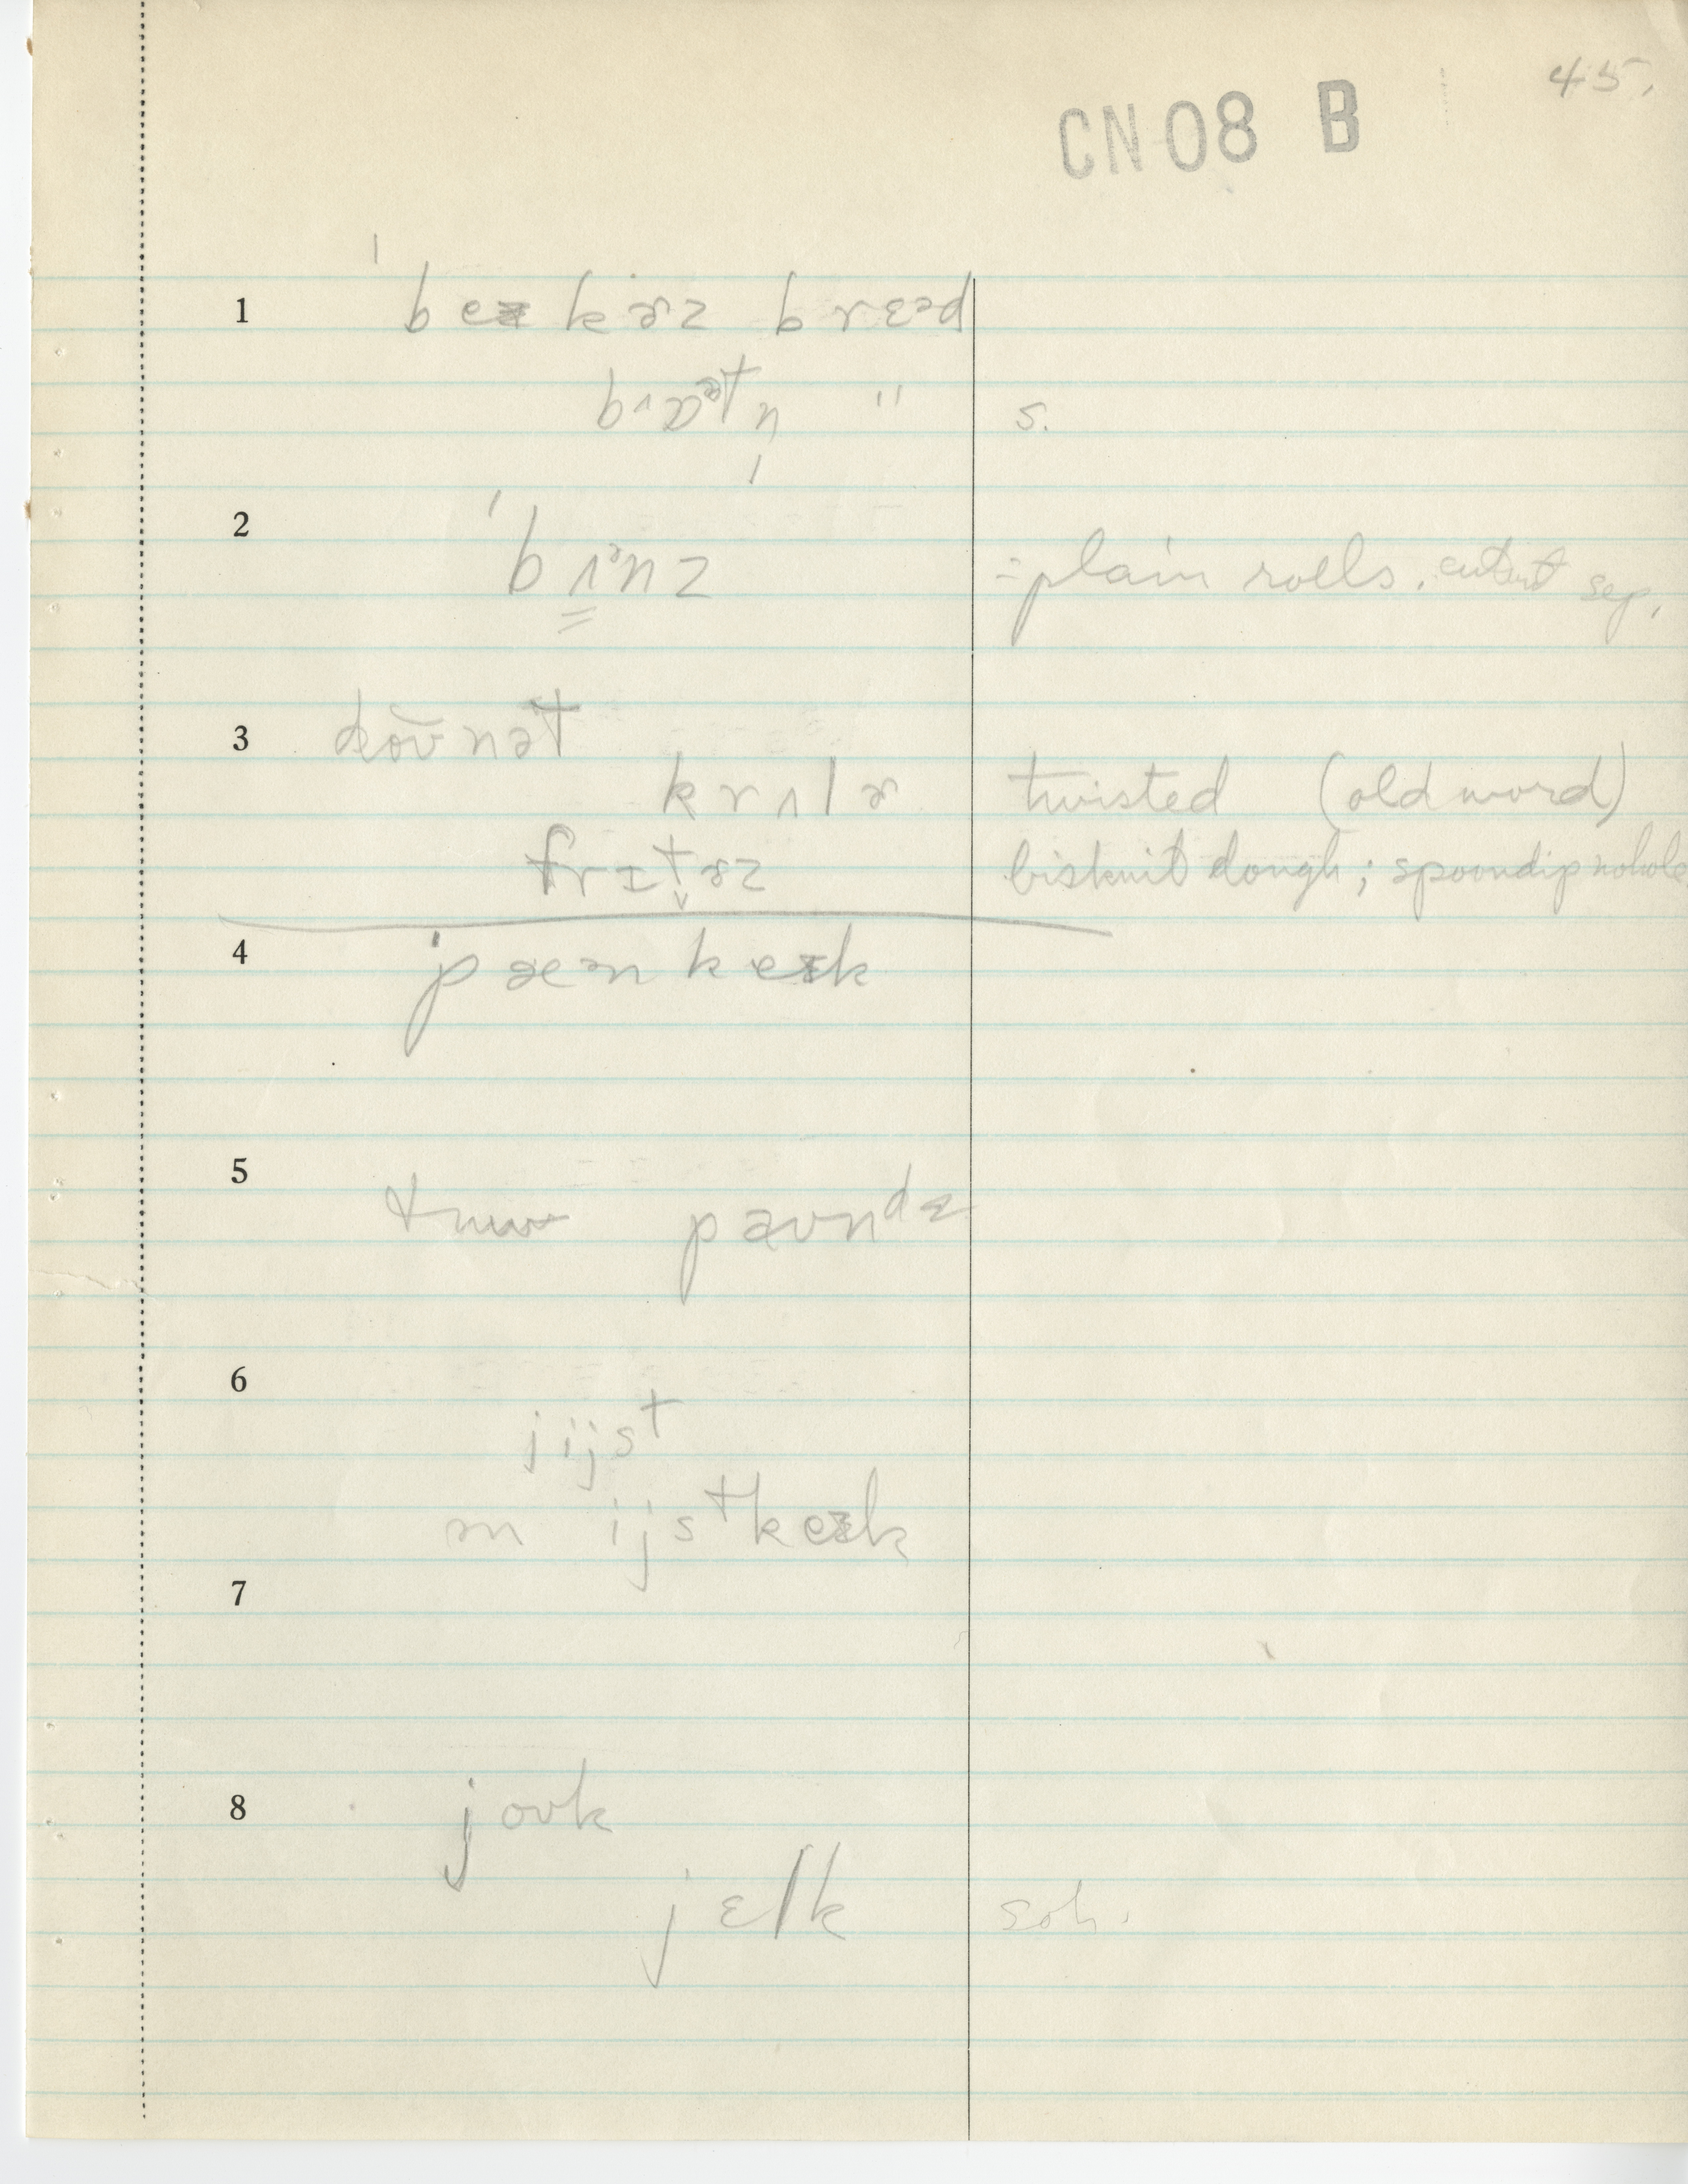 45.
CN 08 B
1 ˈbeɪkɚz brɛəd
bɔətn̩ " s.
2 ˈbʌənz = plain rolls. cut out sep.
3 doʊnət
krʌlɚ twisted (old word)
frɪt̬ɚz biskuit dough; spoondip no hole
4 pæənkeɪk
5 tuw paʊndz
6 jijst
ən ijstkeɪk
7
8 joʊk
jɛlk